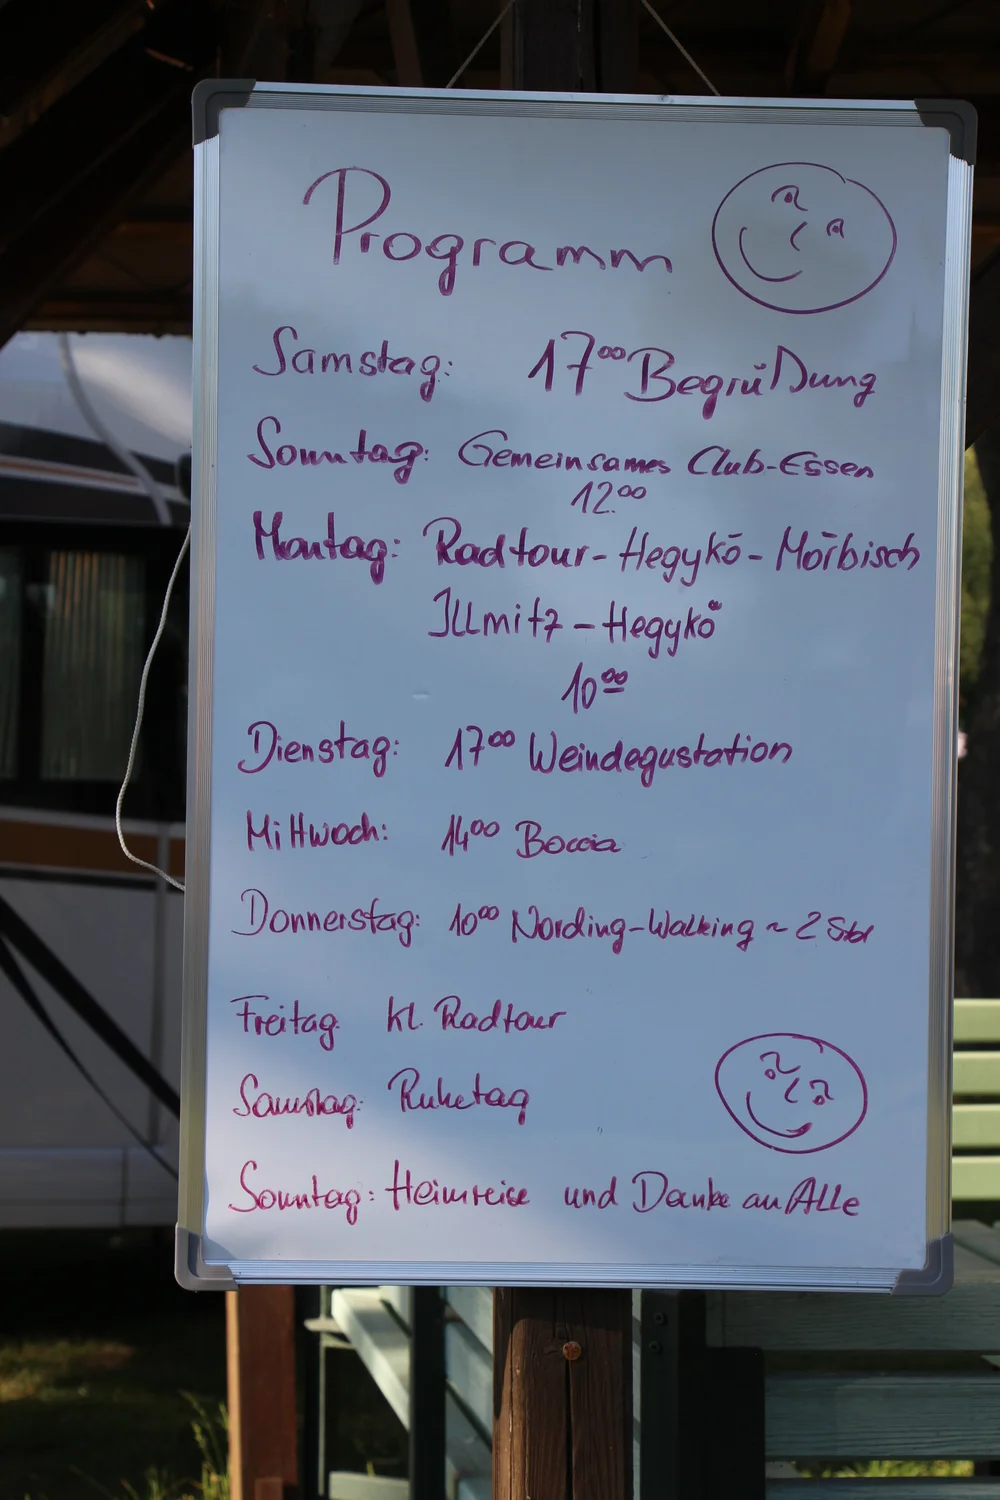 Programm
Samstag: 17⁰⁰ Begrüßung
Sonntag: Gemeinsames Club-Essen
12.⁰⁰
Montag: Radtour-Hegykő-Mörbisch
Illmitz-Hegykő
10⁰⁰
Dienstag: 17⁰⁰ Weindegustation
Mittwoch: 14⁰⁰ Boccia
Donnerstag: 10⁰⁰ Nording-Walking ~ 2 Std
Freitag: kl. Radtour
Samstag: Ruhetag
Sonntag: Heimreise und Danke an Alle